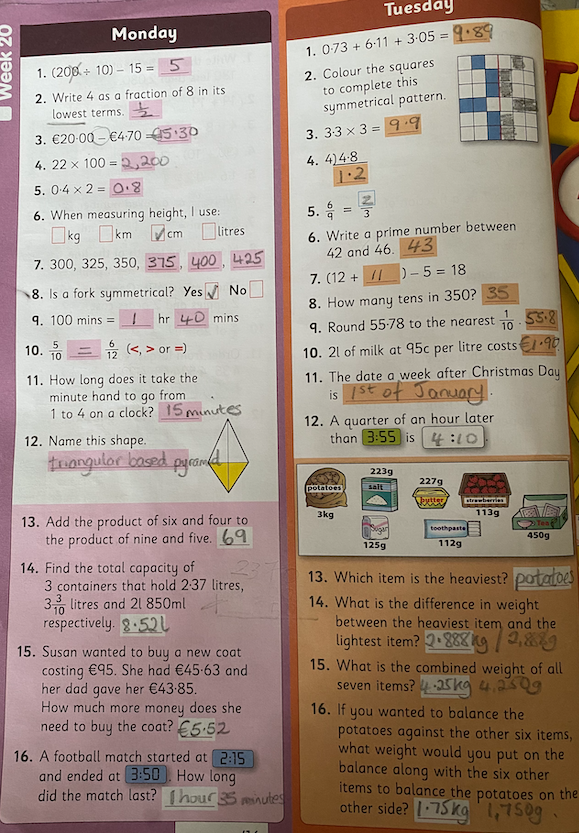 Week 20
Monday
1. (200 ÷ 10) – 15 = 5
2. Write 4 as a fraction of 8 in its
lowest terms. 1/2
3. €20·00 – €4·70 = €15·30
4. 22 × 100 = 2,200
5. 0·4 × 2 = 0·8
6. When measuring height, I use:
kg km ✓ cm litres
7. 300, 325, 350, 375, 400, 425
8. Is a fork symmetrical? Yes ✓ No
9. 100 mins = 1 hr 40 mins
10. 5/10 = 6/12 (<, > or =)
11. How long does it take the
minute hand to go from
1 to 4 on a clock? 15 minutes
12. Name this shape.
triangular based pyramid
13. Add the product of six and four to
the product of nine and five. 69
14. Find the total capacity of
3 containers that hold 2·37 litres,
3 3/10 litres and 2l 850ml
respectively. 8·52l
15. Susan wanted to buy a new coat
costing €95. She had €45·63 and
her dad gave her €43·85.
How much more money does she
need to buy the coat? €5·52
16. A football match started at 2:15
and ended at 3:50. How long
did the match last? 1 hour 35 minutes
Tuesday
1. 0·73 + 6·11 + 3·05 = 9·89
2. Colour the squares
to complete this
symmetrical pattern.
3. 3·3 × 3 = 9·9
4. 4)4·8
1·2
5. 6/9 = 2/3
6. Write a prime number between
42 and 46. 43
7. (12 + 11) – 5 = 18
8. How many tens in 350? 35
9. Round 55·78 to the nearest 1/10. 55·8
10. 2l of milk at 95c per litre costs €1·90
11. The date a week after Christmas Day
is 1st of January.
12. A quarter of an hour later
than 3:55 is 4:10.
potatoes
3kg
223g
salt
227g
butter
strawberries
113g
Sugar
125g
toothpaste
112g
Teas
450g
13. Which item is the heaviest? potatoes
14. What is the difference in weight
between the heaviest item and the
lightest item? 2·888kg / 2,888g
15. What is the combined weight of all
seven items? 4·25kg 4,250g
16. If you wanted to balance the
potatoes against the other six items,
what weight would you put on the
balance along with the six other
items to balance the potatoes on the
other side? 1·75kg 1,750g.